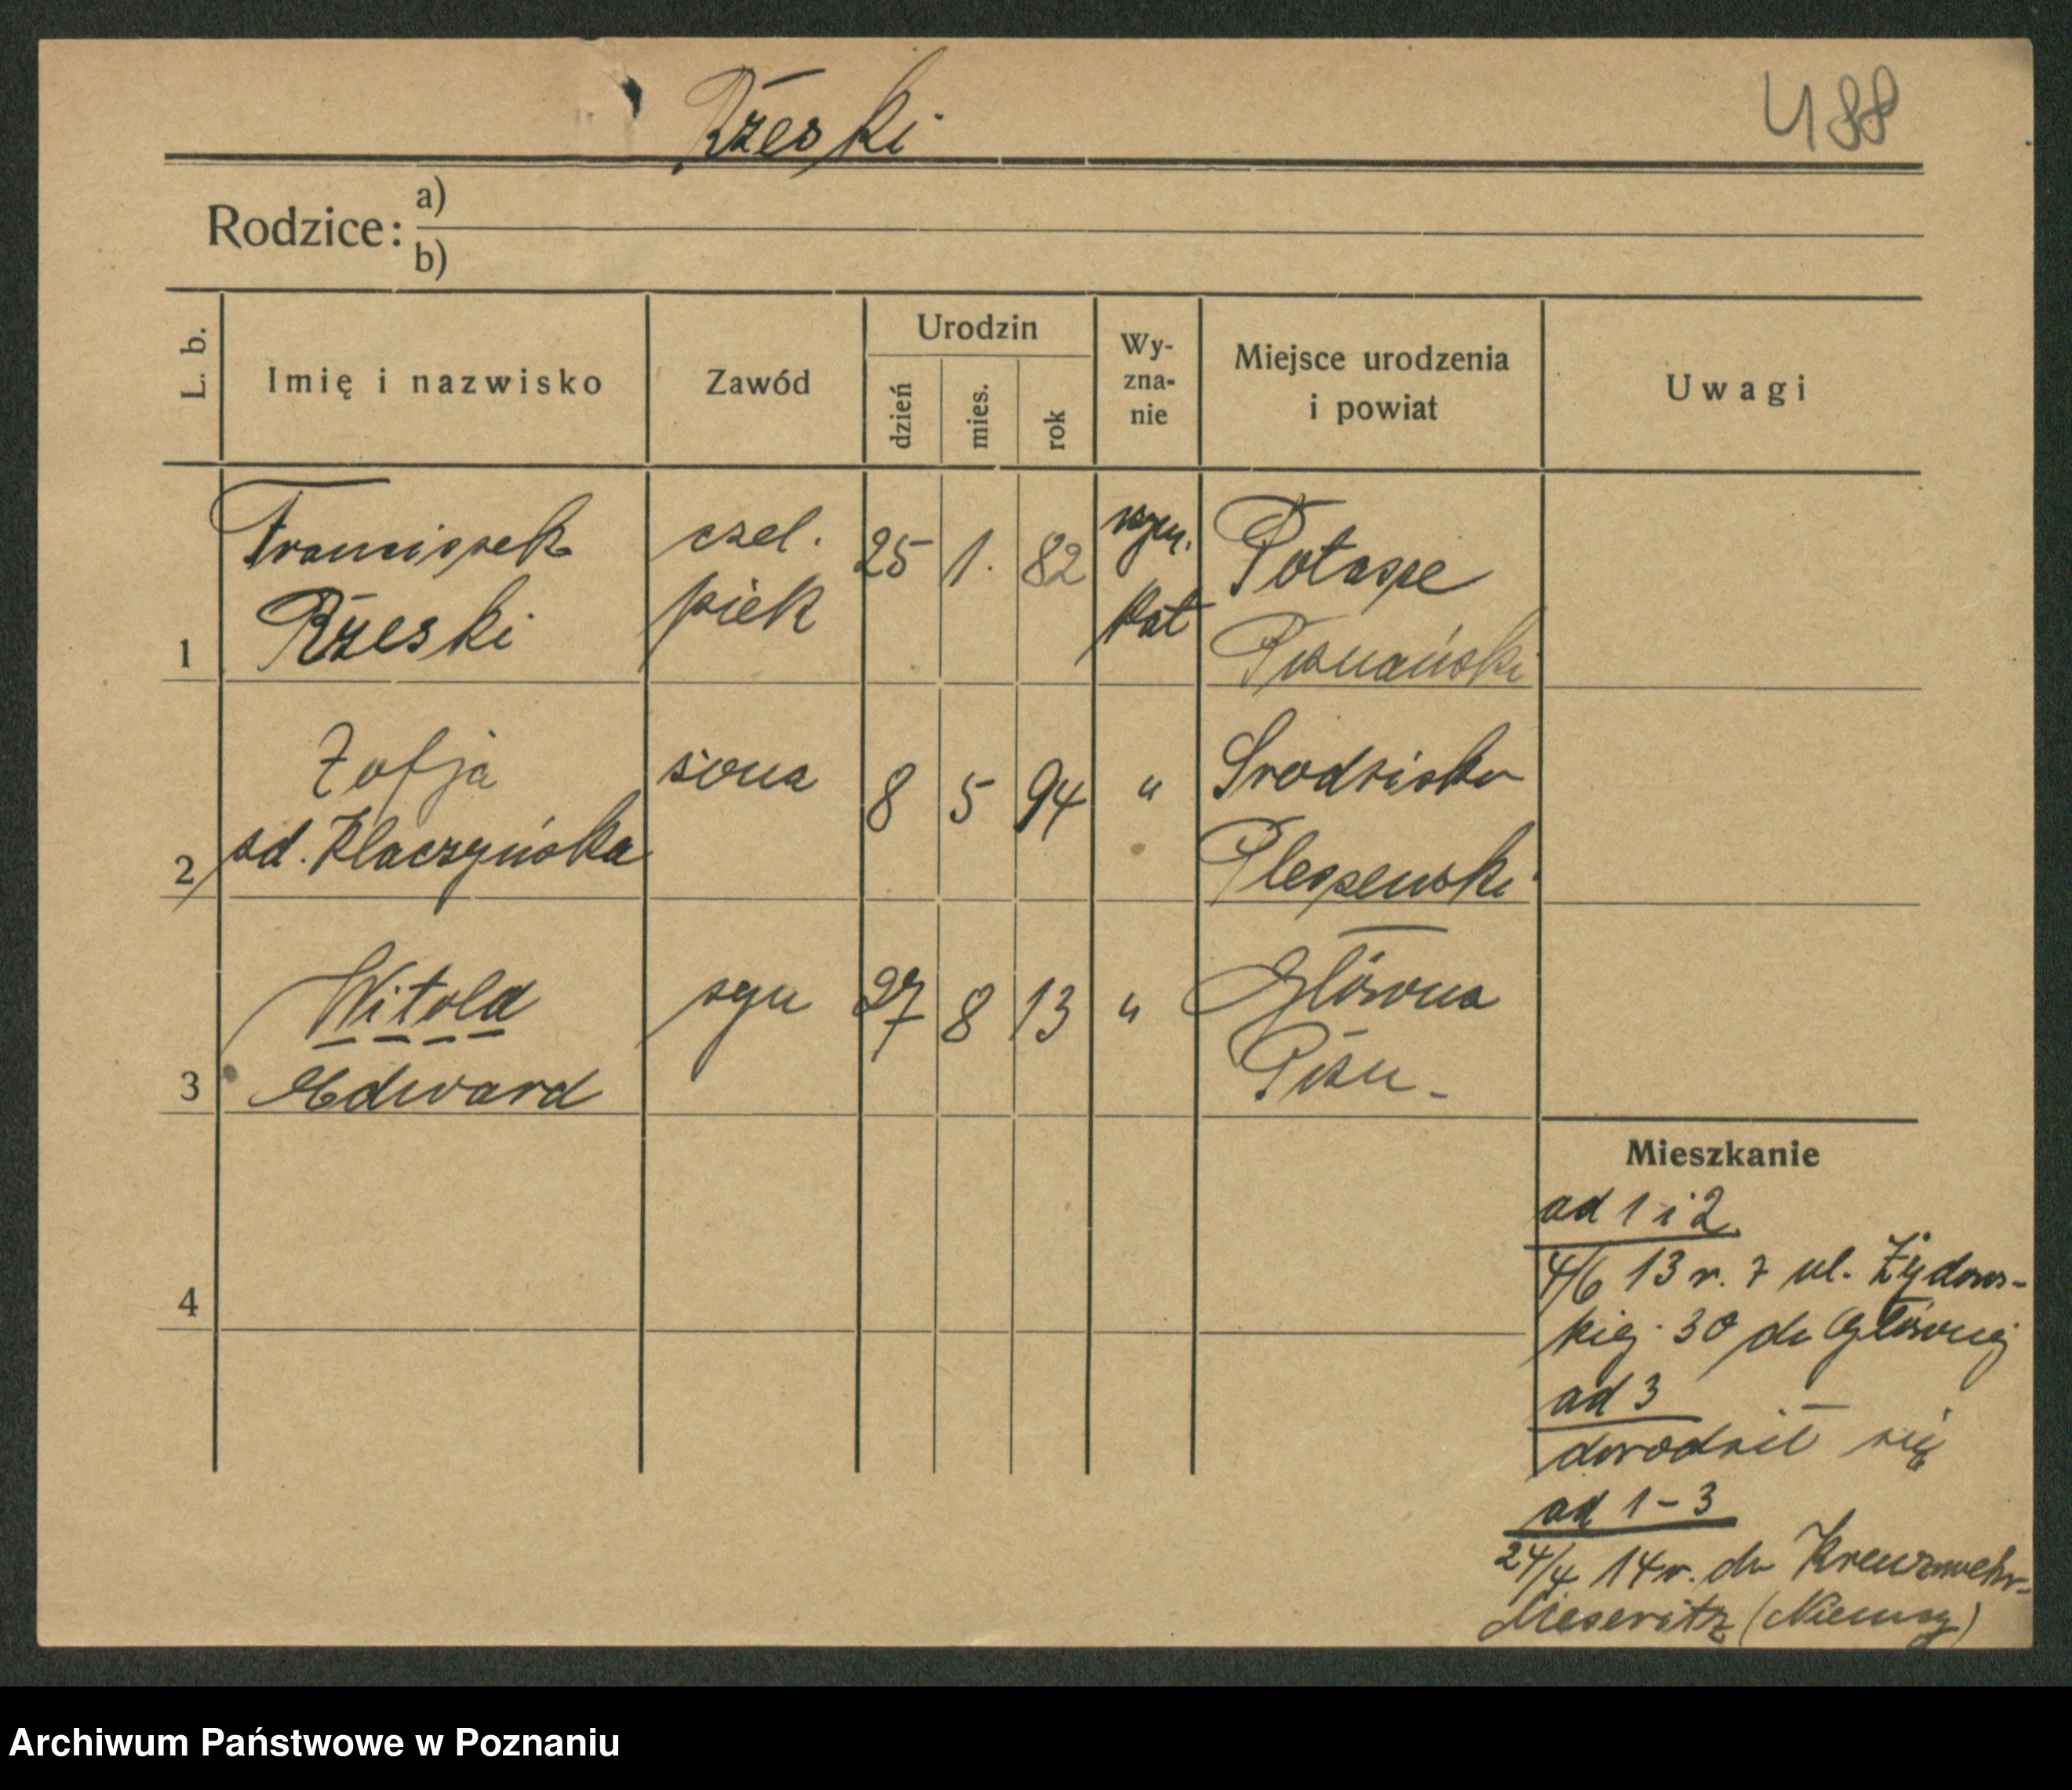 Rzeski
488
Rodzice: a)
b)
L. b.
Imię i nazwisko
Zawód
Urodzin
dzień
mies.
rok
Wy-
zna-
nie
Miejsce urodzenia
i powiat
Uwagi
1 Franciszek czel. 25 1. 82 rzym. Potasze
Rzeski piek kat Poznański
2 Zofja żona 8 5 94 "
zd. Klaczyńska Pleszewski
3 Witold syn 27 8 13 " Główna
Edward Pozn-
4
Mieszkanie
ad 1 i 2
4/6 13 r. z ul. Żydows-
kiej 30 do Głównej
ad 3
dorodził się
ad 1-3
24/4 14 r. do
Meseritz (Niemcy)
Archiwum Państwowe w Poznaniu